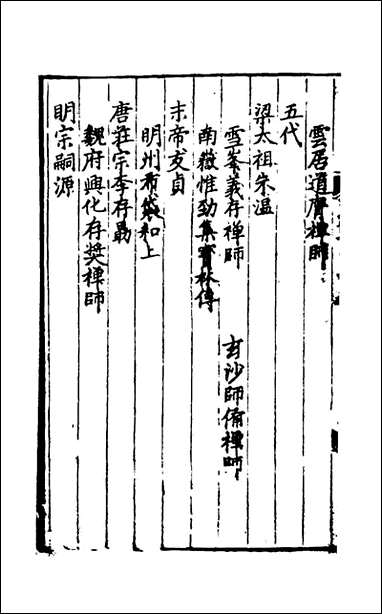 雲居道膺禪師
五代
梁太祖朱温
雪峯義存禅師 玄沙師備禪師
南嶽惟劲集寳林傳
末帝友貞
明州布袋和上
唐莊宗李存勗
魏府興化存奨禅師
明宗嗣源